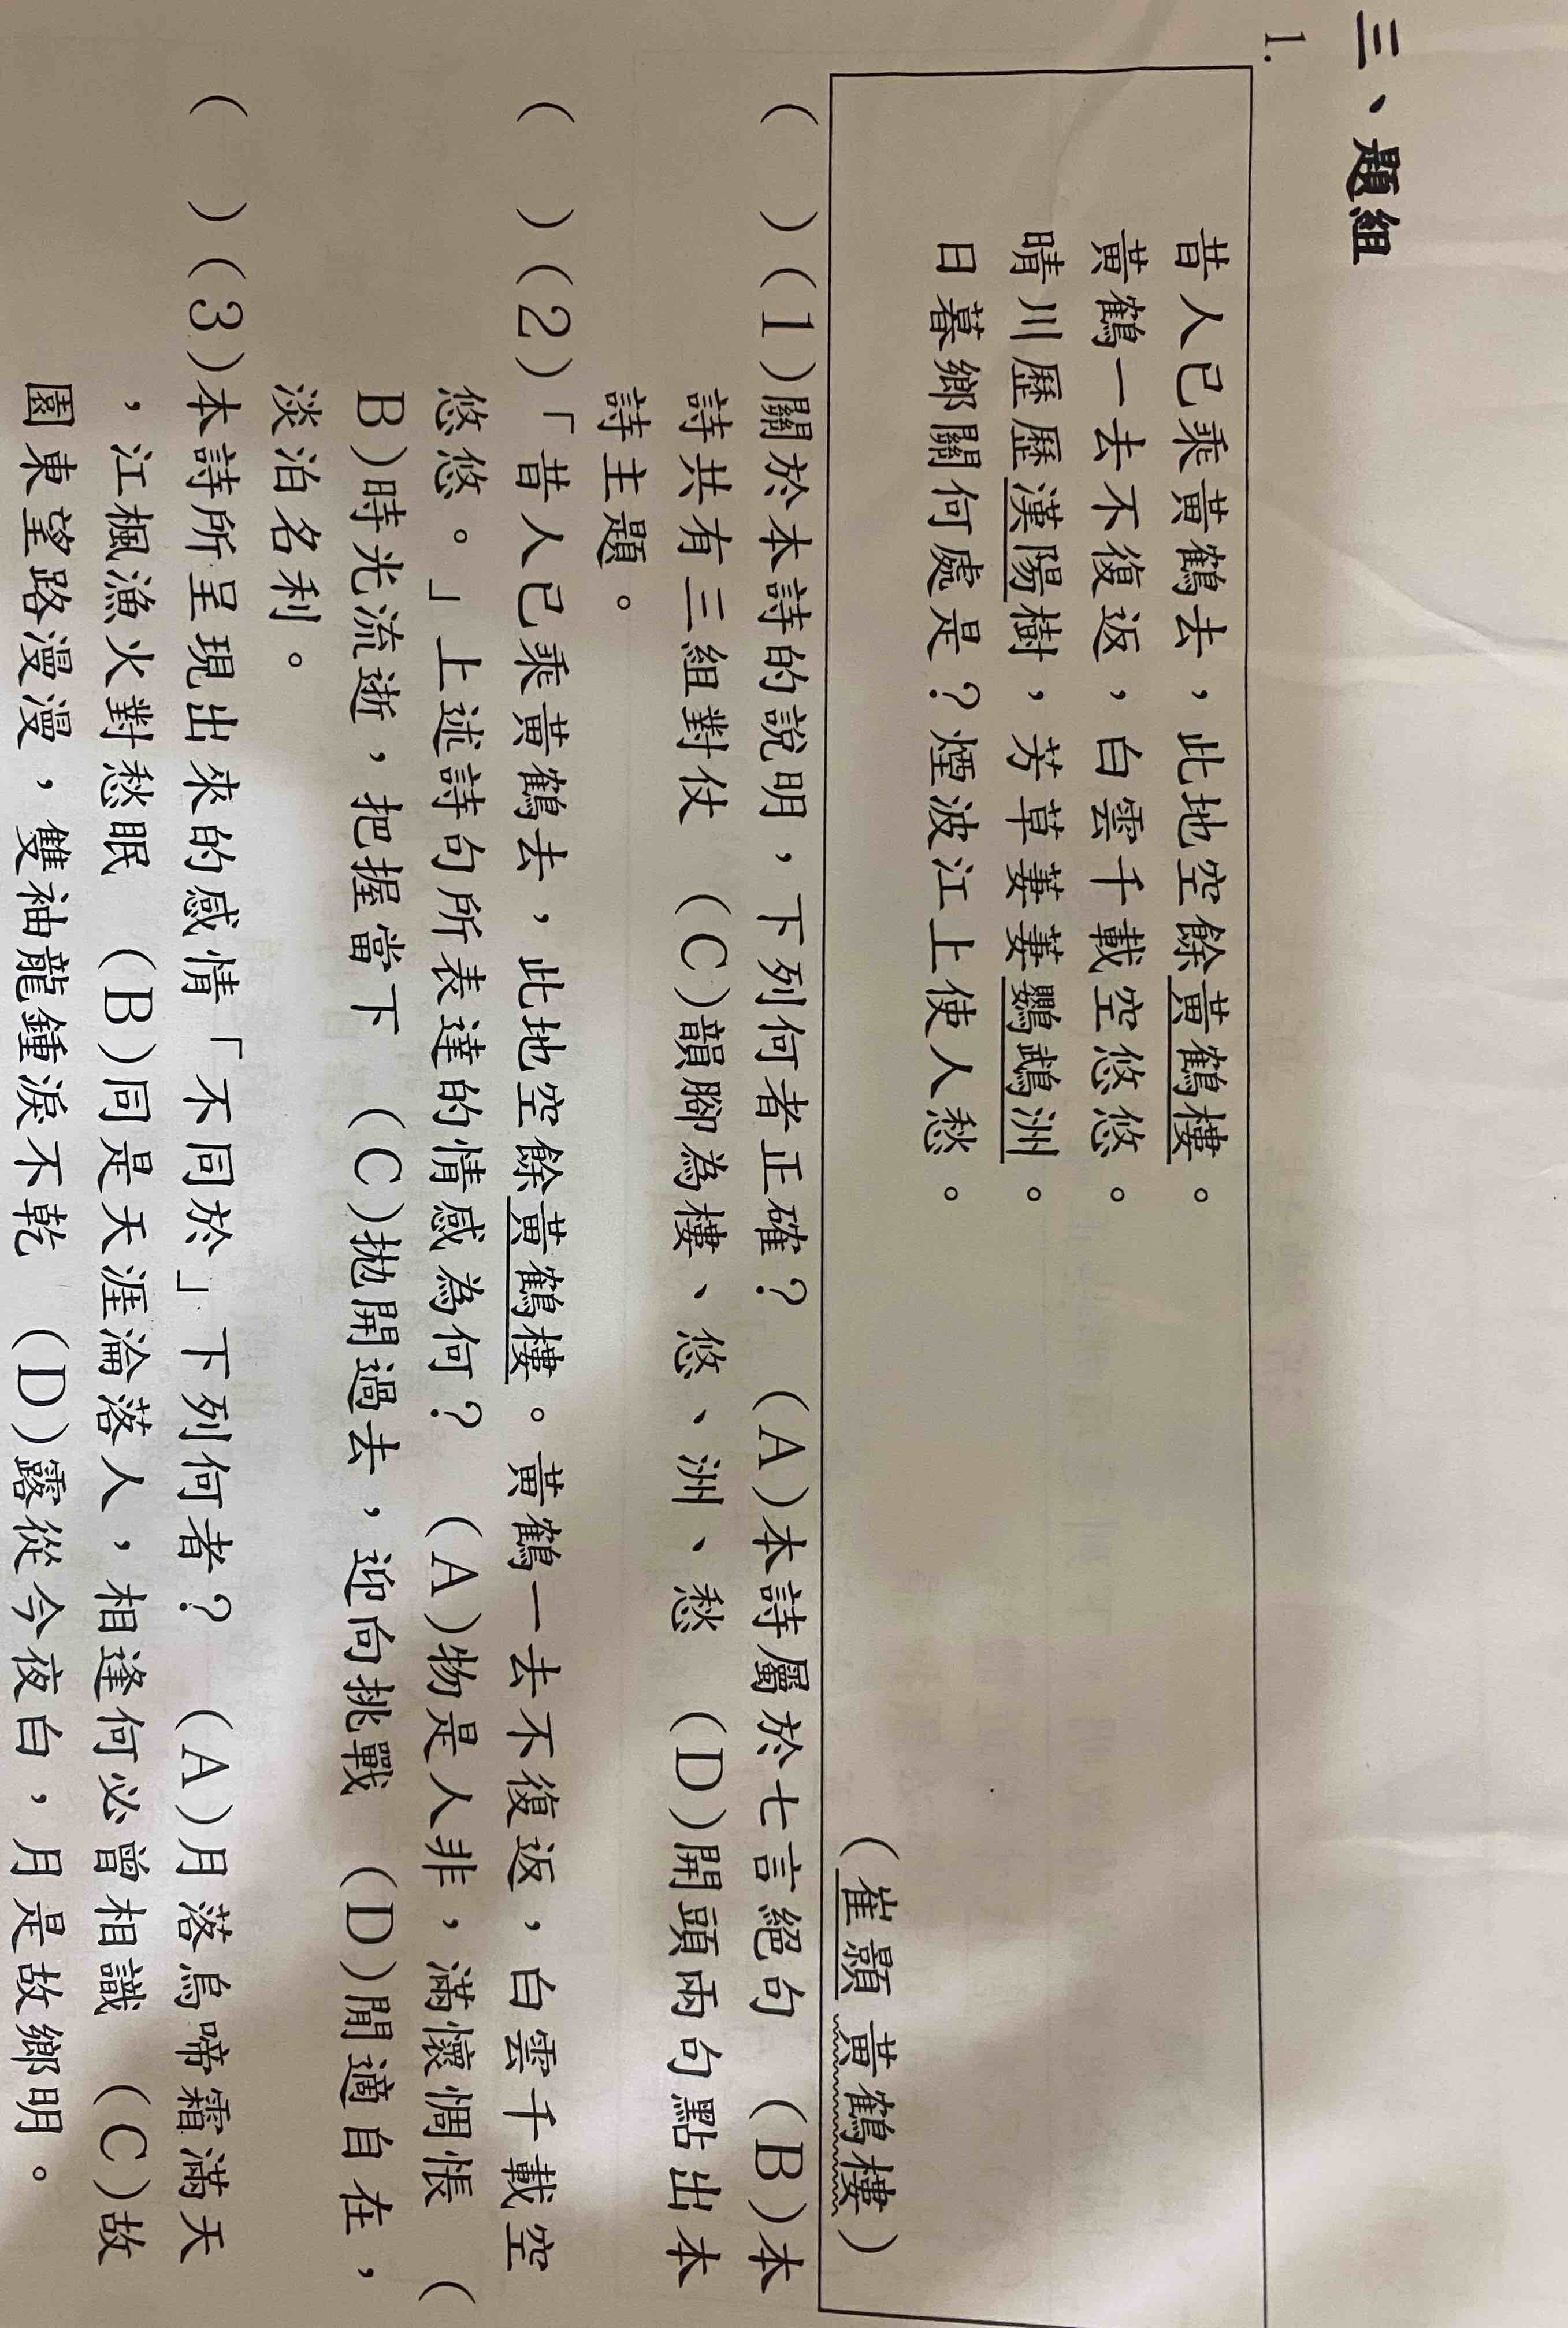 三、題組
1.
昔人已乘黃鶴去，此地空餘黃鶴樓。
黃鶴一去不復返，白雲千載空悠悠。
晴川歷歷漢陽樹，芳草萋萋鸚鵡洲。
日暮鄉關何處是？煙波江上使人愁。
（崔顥 黃鶴樓）
(　　)(1)關於本詩的說明，下列何者正確？　(A)本詩屬於七言絕句　(B)本
詩共有三組對仗　(C)韻腳為樓、悠、洲、愁　(D)開頭兩句點出本
詩主題。
(　　)(2)「昔人已乘黃鶴去，此地空餘黃鶴樓。黃鶴一去不復返，白雲千載空
悠悠。」上述詩句所表達的情感為何？　(A)物是人非，滿懷惆悵　(
B)時光流逝，把握當下　(C)拋開過去，迎向挑戰　(D)閒適自在，
淡泊名利。
(　　)(3)本詩所呈現出來的感情「不同於」下列何者？　(A)月落烏啼霜滿天
，江楓漁火對愁眠　(B)同是天涯淪落人，相逢何必曾相識　(C)故
園東望路漫漫，雙袖龍鍾淚不乾　(D)露從今夜白，月是故鄉明。